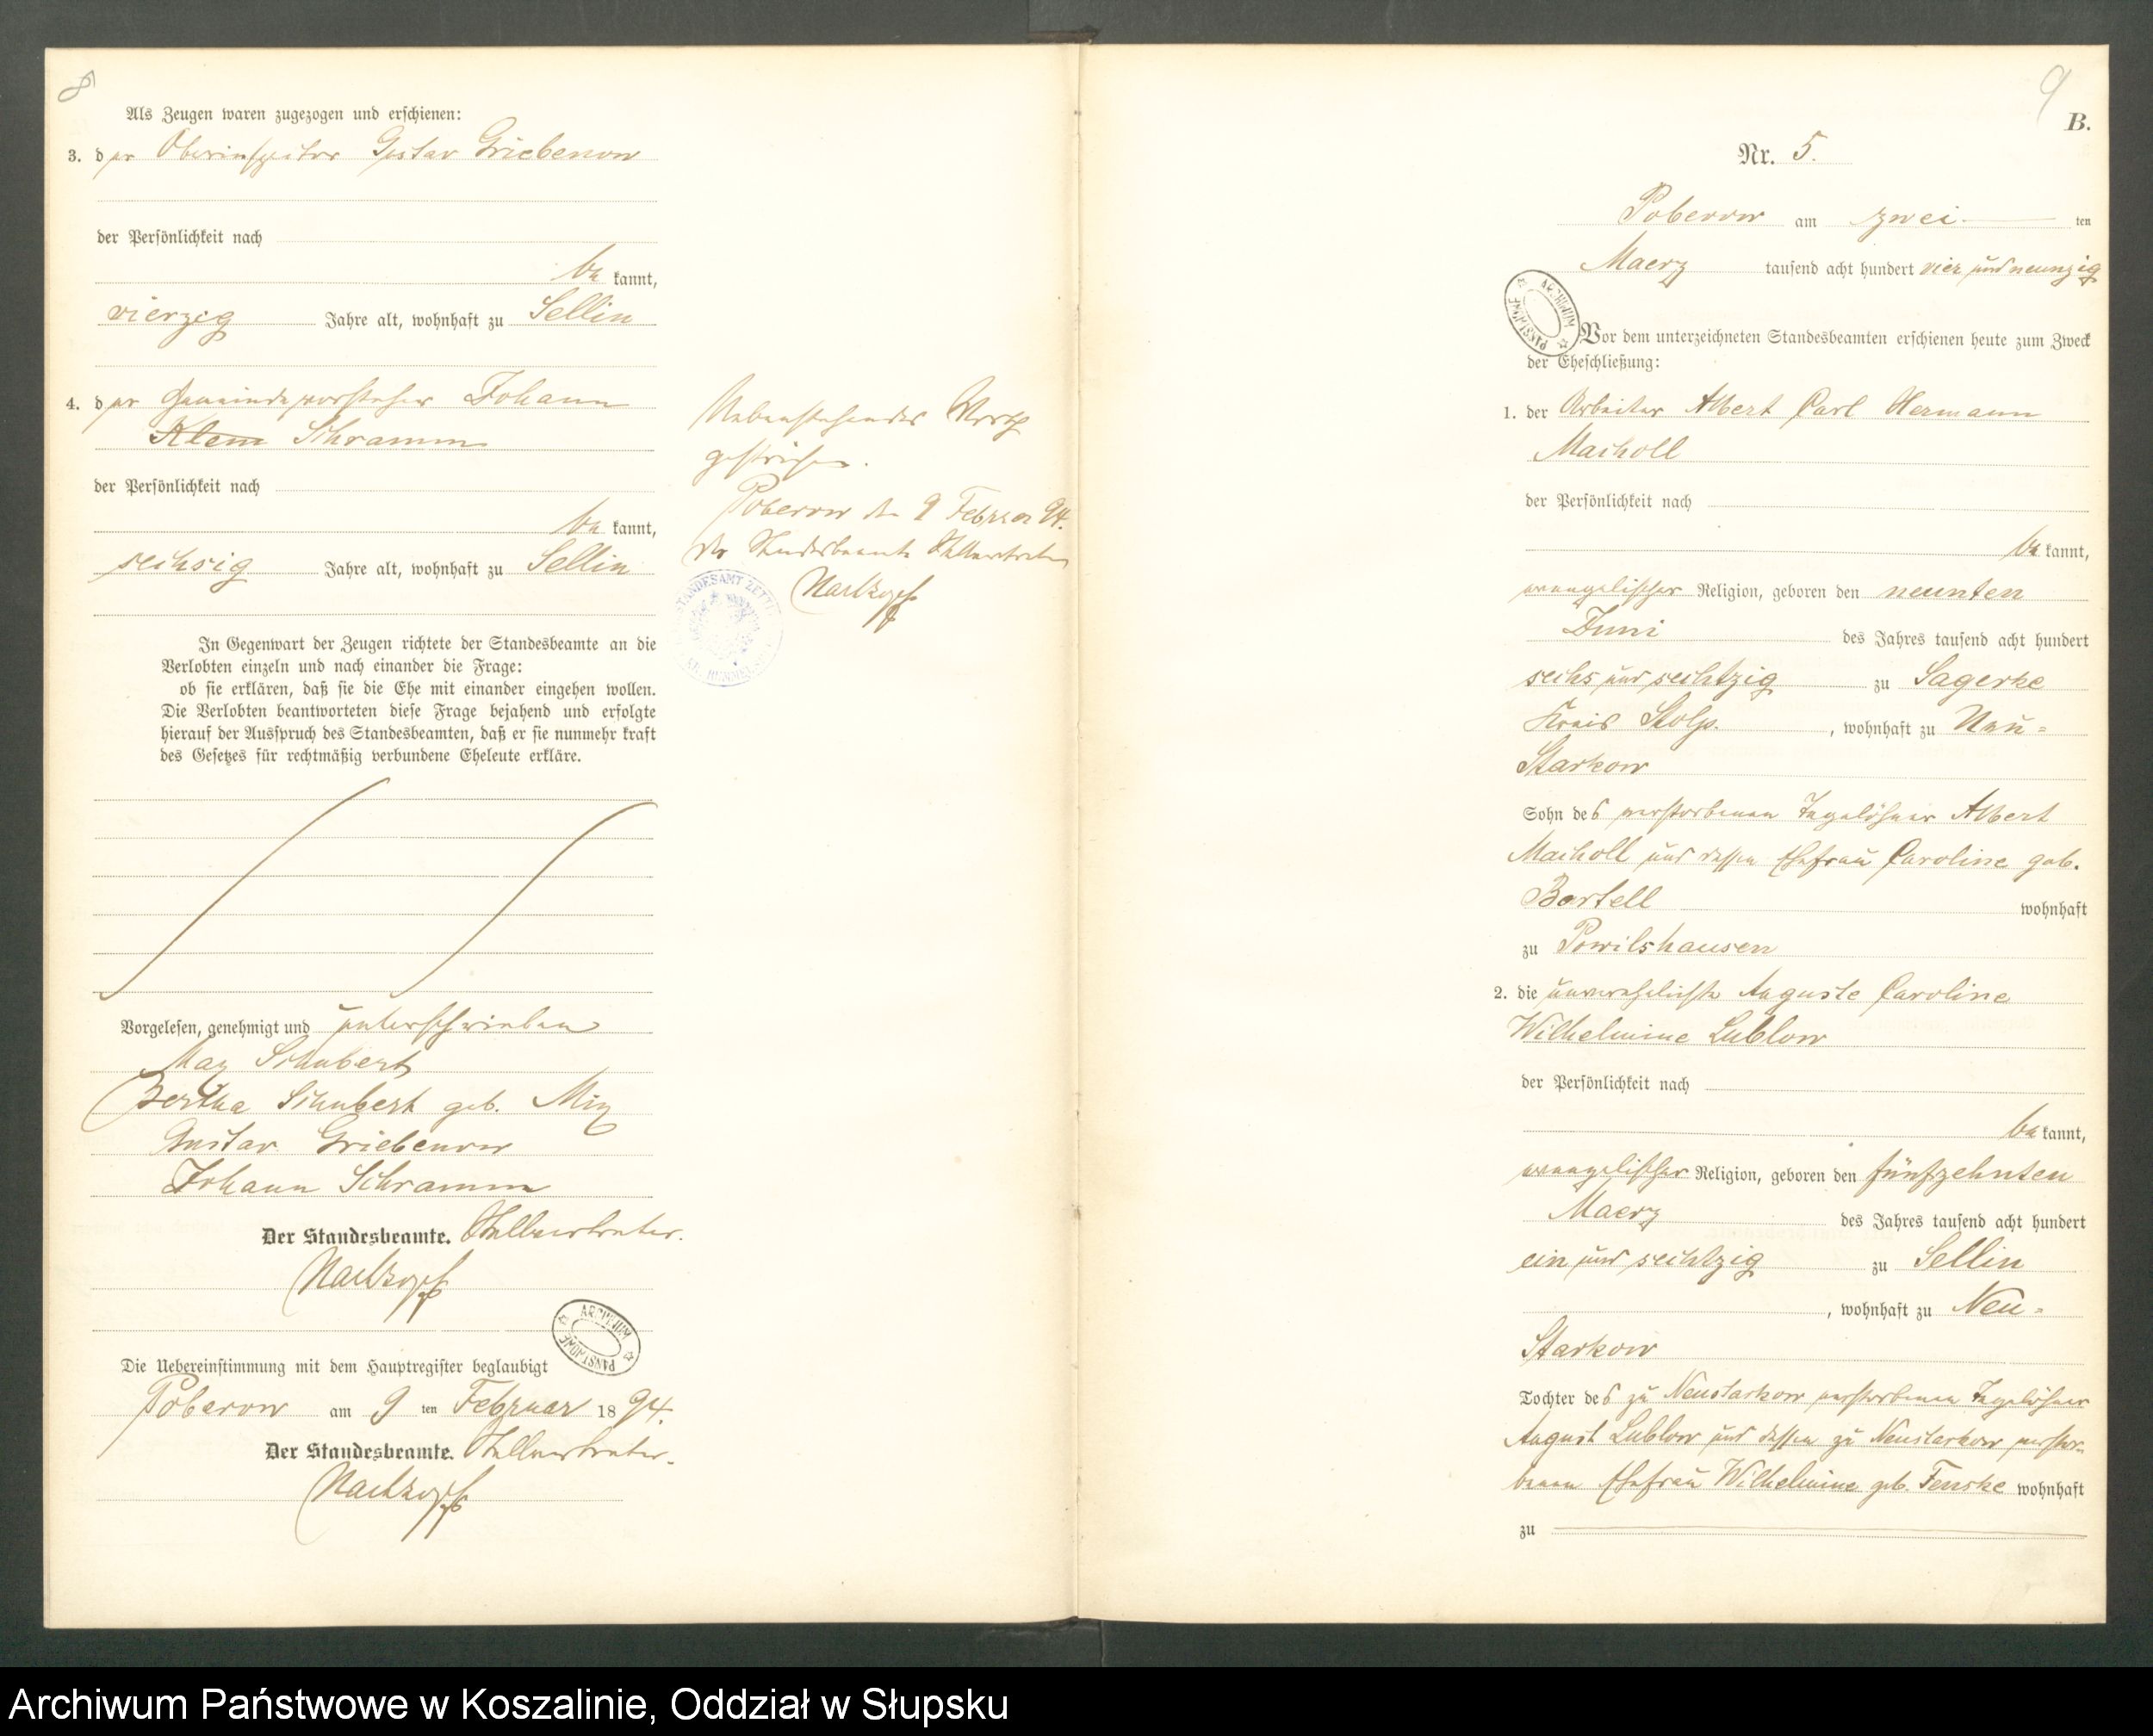 8
Als Zeugen waren zugezogen und erschienen:
3. der Oberinspektor Gustav Griebenow
der Persönlichkeit nach
bekannt,
vierzig Jahre alt, wohnhaft zu Sellin
4. der Gemeindevorsteher Johann
Klem Schramm
der Persönlichkeit nach
bekannt,
sechsig Jahre alt, wohnhaft zu Sellin
Nebenstehendes Wort
gestrichen.
Poberow den 9 Februar 94.
Der Standesbeamte Stellvertreter
Nachzopf
STANDESAMT
In Gegenwart der Zeugen richtete der Standesbeamte an die
Verlobten einzeln und nach einander die Frage:
ob sie erklären, daß sie die Ehe mit einander eingehen wollen.
Die Verlobten beantworteten diese Frage bejahend und erfolgte
hierauf der Ausspruch des Standesbeamten, daß er sie nunmehr kraft
des Gesetzes für rechtmäßig verbundene Eheleute erkläre.
Vorgelesen, genehmigt und unterschrieben
Max Schubert
Bertha Schubert geb. Mix
Gustav Griebenow
Johann Schramm
Der Standesbeamte. Stellvertreter.
Nachzopf
ARCHIWUM PAŃSTWOWE
Die Uebereinstimmung mit dem Hauptregister beglaubigt
Poberow am 9 ten Februar 1894.
Der Standesbeamte. Stellvertreter.
Nachzopf
9
B.
Nr. 5.
Poberow am zwei ten
Maerz tausend acht hundert vier und neunzig
ARCHIWUM PAŃSTWOWE
Vor dem unterzeichneten Standesbeamten erschienen heute zum Zweck
der Eheschließung:
1. der Arbeiter Albert Carl Hermann
Macholl
der Persönlichkeit nach
bekannt,
evangelischer Religion, geboren den neunten
Juni des Jahres tausend acht hundert
sechs und sechtzig zu Sagerke
Kreis Stolp. , wohnhaft zu Neu=
Starkow
Sohn des verstorbenen Tagelöhner Albert
Macholl und dessen Ehefrau Caroline geb.
Bartell wohnhaft
zu Powilshausen
2. die unverehelichte Auguste Caroline
Wilhelmine Lublow
der Persönlichkeit nach
bekannt,
evangelischer Religion, geboren den fünfzehnten
Maerz des Jahres tausend acht hundert
ein und sechtzig zu Sellin
, wohnhaft zu Neu=
Starkow
Tochter des zu Neustarkow verstorbenen Tagelöhner
August Lublow und dessen zu Neustarkow verstor-
benen Ehefrau Wilhelmine geb. Fenske wohnhaft
zu
Archiwum Państwowe w Koszalinie, Oddział w Słupsku